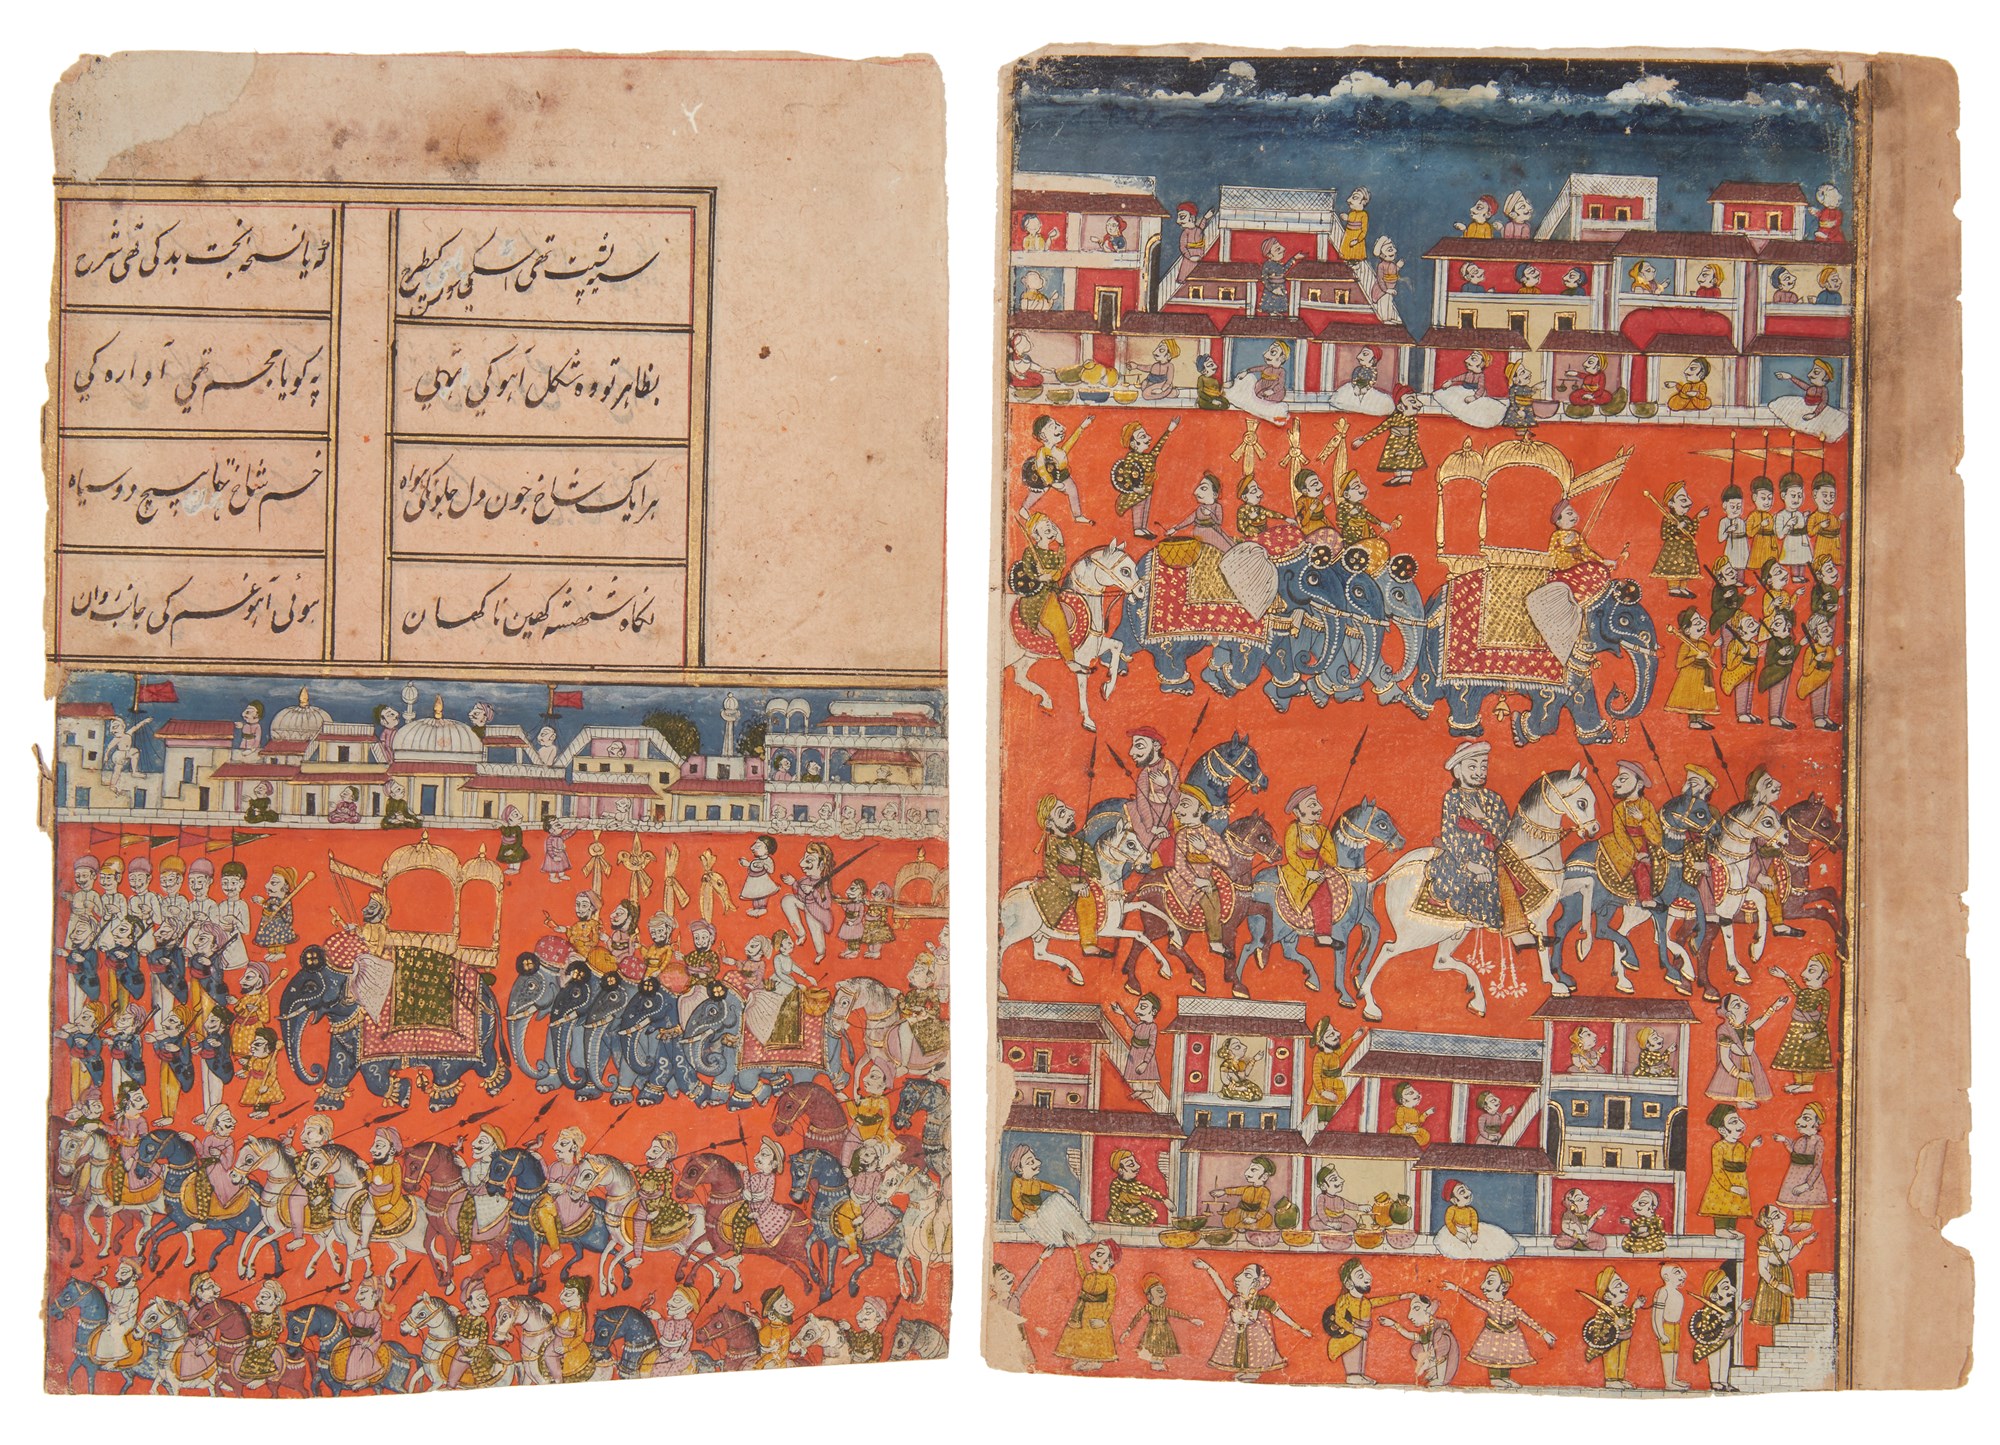 سیہ پشت تھی اسکی کیطرح
نسخہ بخت بد کی تھی شرح
بظاہر تو وہ شکل آہو کی تھی
پہ کویا مجسم تھی آوارہ کی
ہر ایک شاخ جون دل جلونکی ہو آہ
خم شاخ تھا پیچ دو سیاہ
نکاہ شہنشہ کہین ناکہان
ہوئی آہو غم کی جانب روان